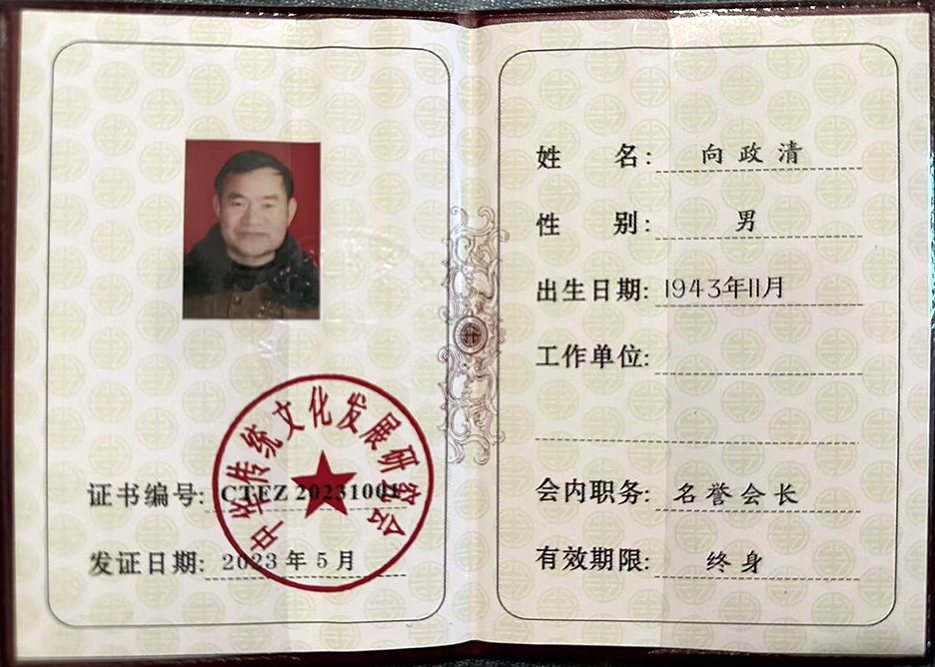 中华传统文化发展研究会
证书编号: CTEZ 20231001
发证日期: 2023年5月
姓 名: 向政清
性 别: 男
出生日期: 1943年11月
工作单位:
会内职务: 名誉会长
有效期限: 终身